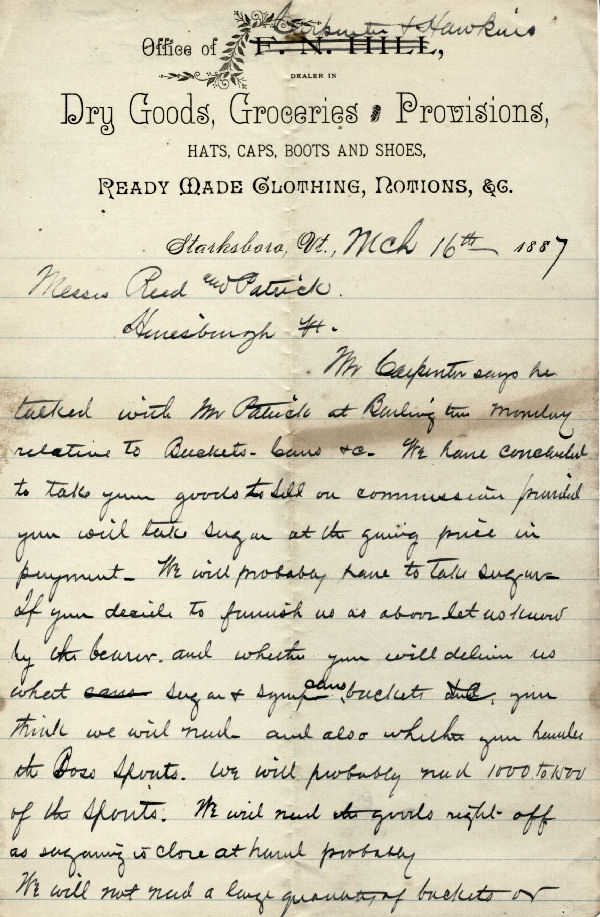 Carpenter & Hawkins
Office of F. N. HILL,
DEALER IN
Dry Goods, Groceries & Provisions,
HATS, CAPS, BOOTS AND SHOES,
READY MADE CLOTHING, NOTIONS, &C.
Starksboro, Vt., Mch 16th 1887
Messrs Reed and Patrick.
Hinesburgh Vt.
Mr Carpenter says he
talked with Mr Patrick at Burlington Monday
relative to Buckets - Cans &c - We have concluded
to take your goods to sell on commission provided
you will take sugar at the going price in
payment - We will probably have to take sugar -
If you decide to furnish us as above let us know
by the bearer. and whether you will deliver us
what cans sugar & syrup cans, buckets &c, you
think we will need - and also whether you handle
the Boss Spouts. We will probably need 1000 to 1500
of the Spouts. We will need the goods right off
as sugaring is close at hand probably
We will not need a large quantity of buckets or